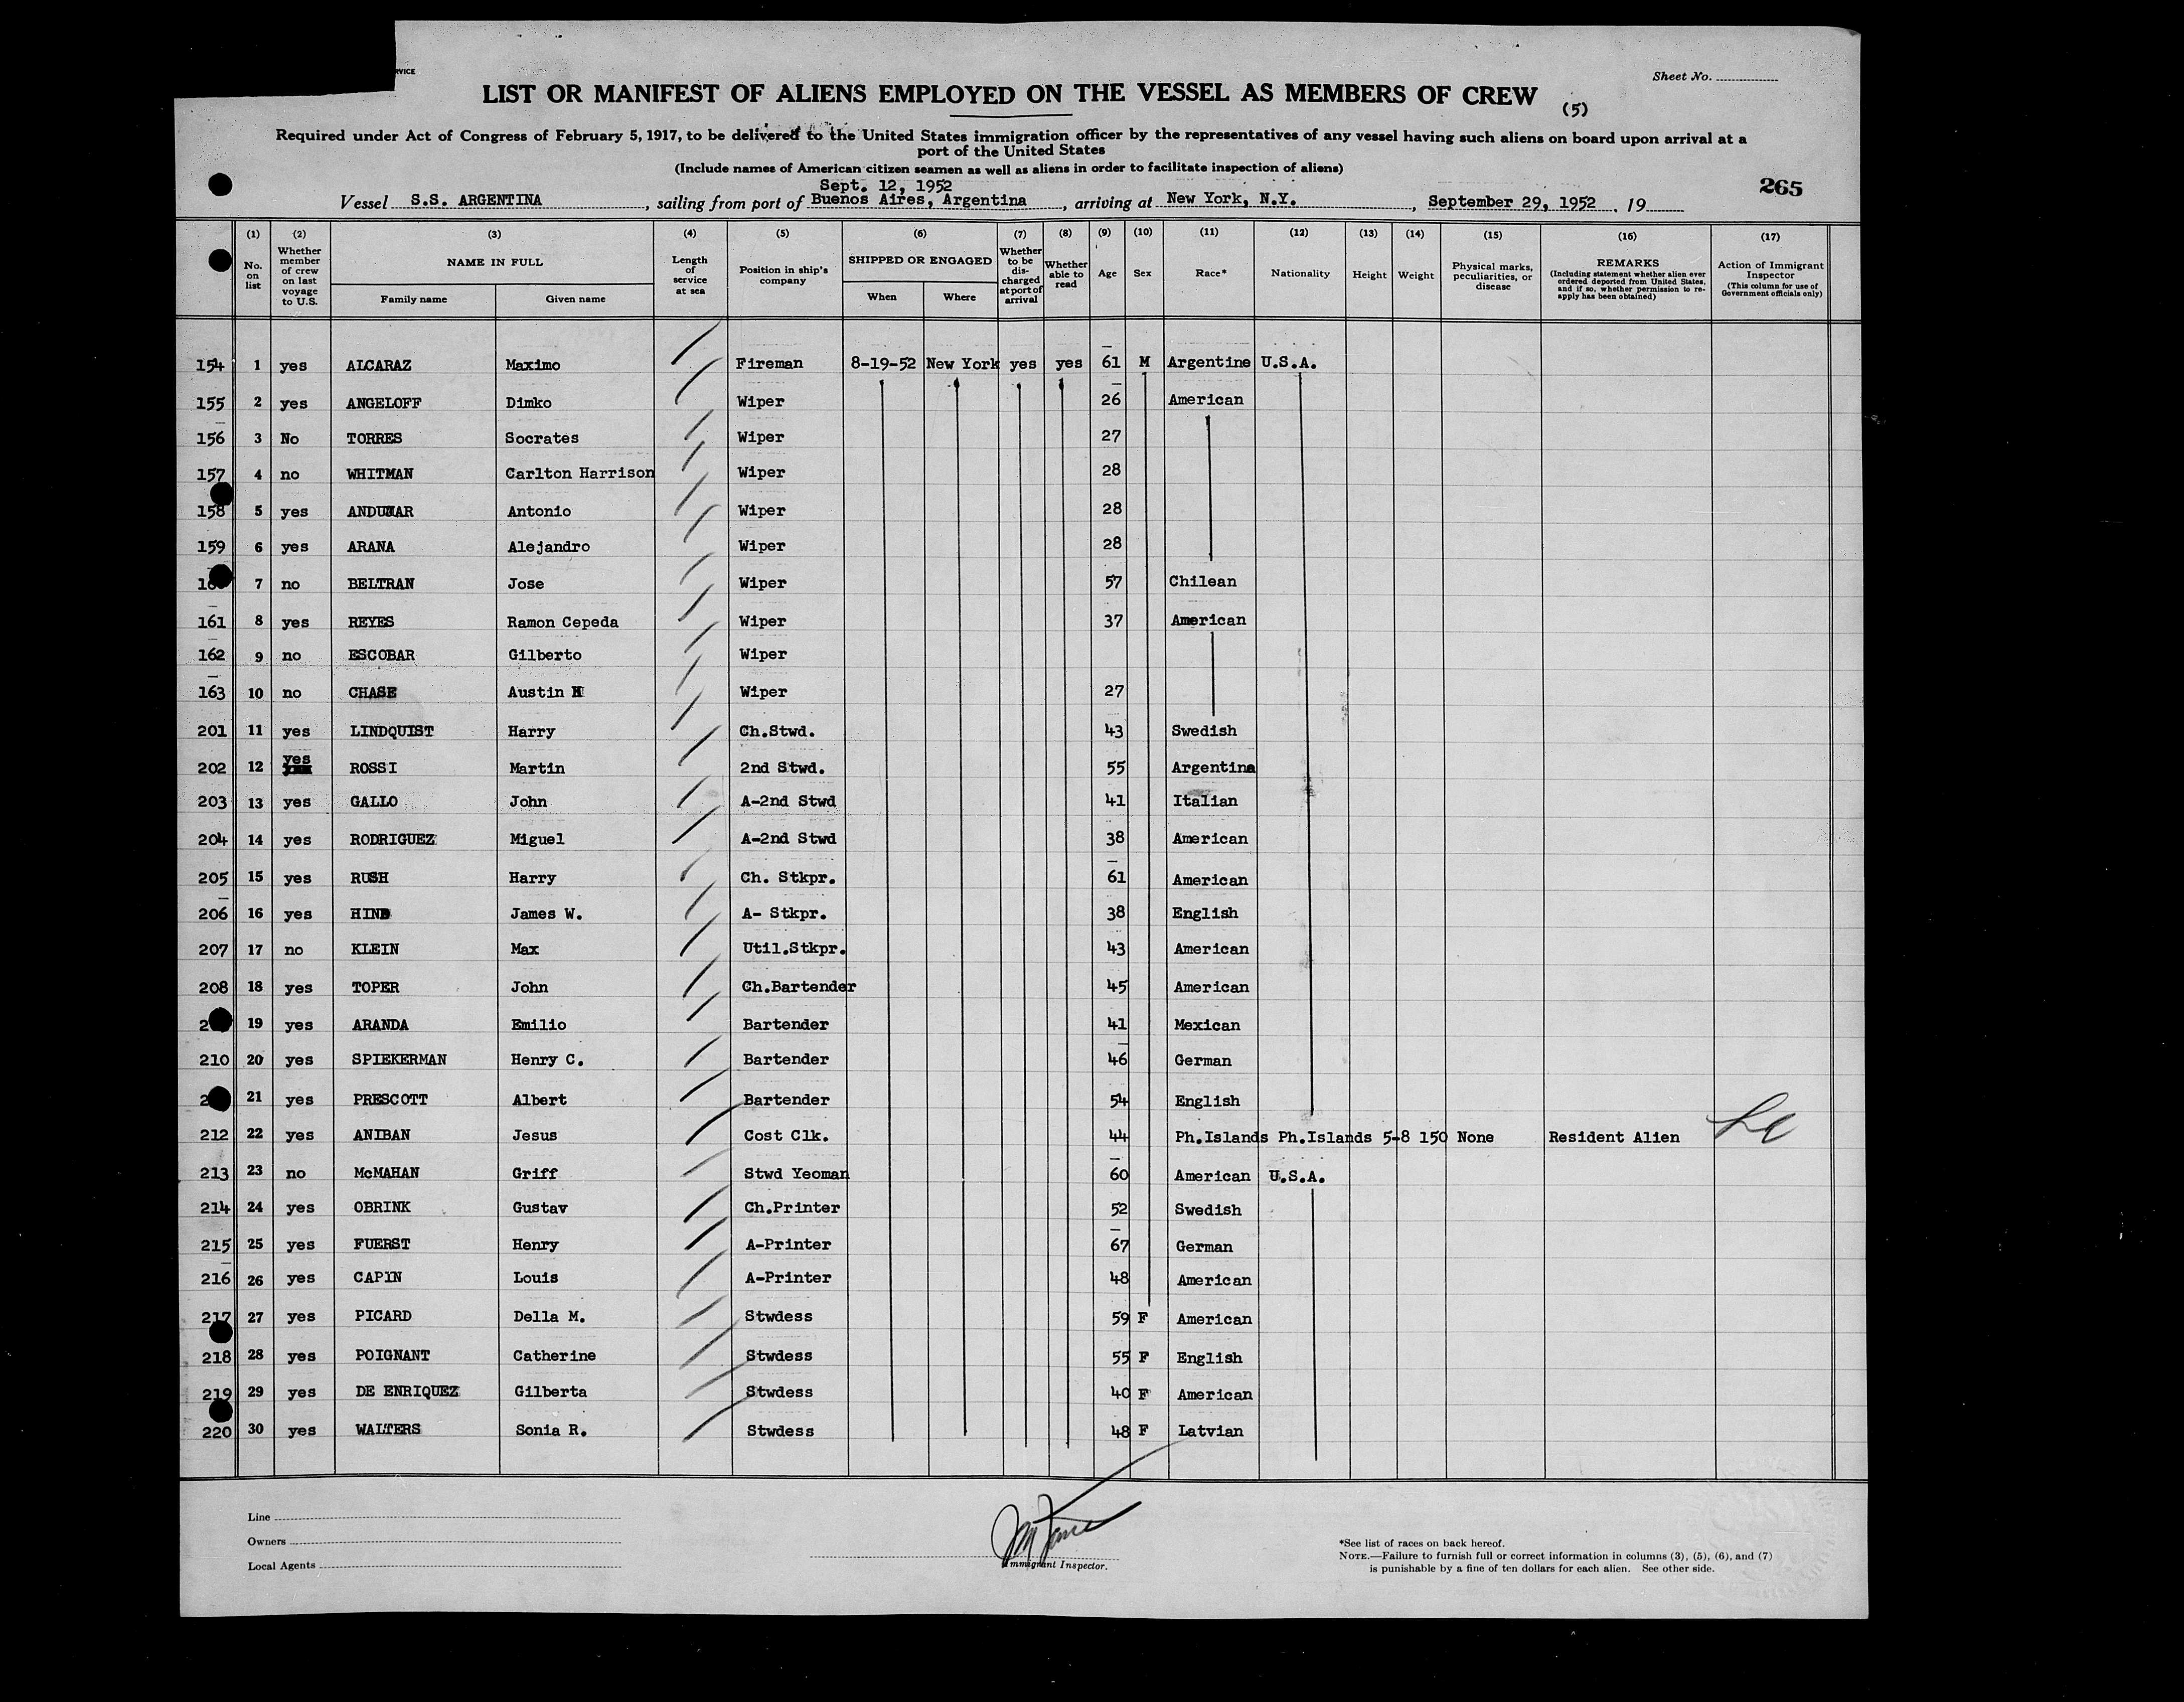 RVICE
Sheet No.
LIST OR MANIFEST OF ALIENS EMPLOYED ON THE VESSEL AS MEMBERS OF CREW
(5)
Required under Act of Congress of February 5, 1917, to be delivered to the United States immigration officer by the representatives of any vessel having such aliens on board upon arrival at a
port of the United States
(Include names of American citizen seamen as well as aliens in order to facilitate inspection of aliens)
Sept. 12, 1952
265
Vessel S.S. ARGENTINA, sailing from port of Buenos Aires, Argentina, arriving at New York, N.Y., September 29, 1952, 19
(1) No. on list
(2) Whether member of crew on last voyage to U.S.
(3) NAME IN FULL Family name Given name
(4) Length of service at sea
(5) Position in ship's company
(6) SHIPPED OR ENGAGED When Where
(7) Whether to be discharged at port of arrival
(8) Whether able to read
(9) Age
(10) Sex
(11) Race*
(12) Nationality
(13) Height
(14) Weight
(15) Physical marks, peculiarities, or disease
(16) REMARKS (Including statement whether alien ever ordered deported from United States, and if so, whether permission to reapply has been obtained)
(17) Action of Immigrant Inspector (This column for use of Government officials only)
154 1 yes ALCARAZ Maximo Fireman 8-19-52 New York yes yes 61 M Argentine U.S.A.
155 2 yes ANGELOFF Dimko Wiper 26 American
156 3 No TORRES Socrates Wiper 27
157 4 no WHITMAN Carlton Harrison Wiper 28
158 5 yes ANDUJAR Antonio Wiper 28
159 6 yes ARANA Alejandro Wiper 28
7 no BELTRAN Jose Wiper 57 Chilean
161 8 yes REYES Ramon Cepeda Wiper 37 American
162 9 no ESCOBAR Gilberto Wiper
163 10 no CHASE Austin Wiper 27
201 11 yes LINDQUIST Harry Ch.Stwd. 43 Swedish
202 12 yes ROSSI Martin 2nd Stwd. 55 Argentina
203 13 yes GALLO John A-2nd Stwd 41 Italian
204 14 yes RODRIGUEZ Miguel A-2nd Stwd 38 American
205 15 yes RUSH Harry Ch. Stkpr. 61 American
206 16 yes HIND James W. A- Stkpr. 38 English
207 17 no KLEIN Max Util.Stkpr. 43 American
208 18 yes TOPER John Ch.Bartender 45 American
19 yes ARANDA Emilio Bartender 41 Mexican
210 20 yes SPIEKERMAN Henry C. Bartender 46 German
21 yes PRESCOTT Albert Bartender 54 English
212 22 yes ANIBAN Jesus Cost Clk. 44 Ph.Islands Ph.Islands 5-8 150 None Resident Alien
213 23 no McMAHAN Griff Stwd Yeoman 60 American U.S.A.
214 24 yes OBRINK Gustav Ch.Printer 52 Swedish
215 25 yes FUERST Henry A-Printer 67 German
216 26 yes CAPIN Louis A-Printer 48 American
217 27 yes PICARD Della M. Stwdess 59 F American
218 28 yes POIGNANT Catherine Stwdess 55 F English
219 29 yes DE ENRIQUEZ Gilberta Stwdess 40 F American
220 30 yes WALTERS Sonia R. Stwdess 48 F Latvian
Line
Owners
Local Agents
Immigrant Inspector.
*See list of races on back hereof.
NOTE.—Failure to furnish full or correct information in columns (3), (5), (6), and (7)
is punishable by a fine of ten dollars for each alien. See other side.